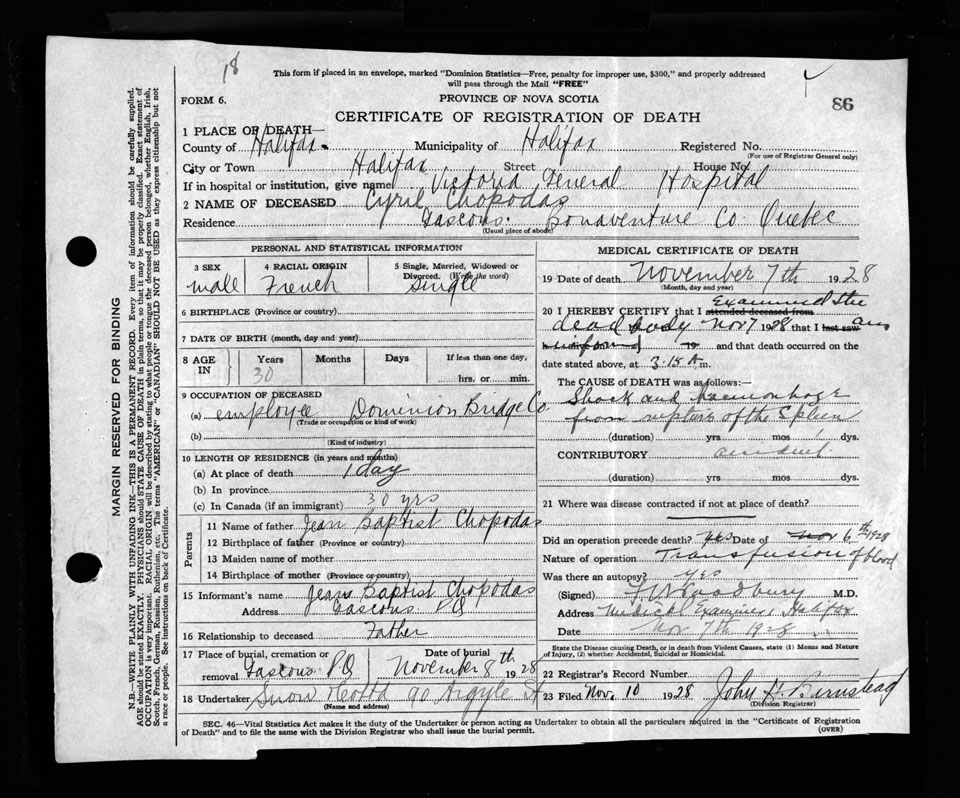 18
This form if placed in an envelope, marked "Dominion Statistics—Free, penalty for improper use, $300," and properly addressed
will pass through the Mail "FREE"
FORM 6.
PROVINCE OF NOVA SCOTIA
86
CERTIFICATE OF REGISTRATION OF DEATH
1 PLACE OF DEATH—
County of Halifax. Municipality of Halifax Registered No.
(For use of Registrar General only)
City or Town Halifax Street House No.
If in hospital or institution, give name Victoria General Hospital
2 NAME OF DECEASED Cyril Chopodas
Residence Gascous. Bonaventure Co. Quebec
(Usual place of abode)
PERSONAL AND STATISTICAL INFORMATION
3 SEX
male
4 RACIAL ORIGIN
French
5 Single, Married, Widowed or
Divorced. (Write the word)
Single
6 BIRTHPLACE (Province or country)
7 DATE OF BIRTH (month, day and year)
8 AGE IN Years Months Days If less than one day,
30 hrs. or min.
9 OCCUPATION OF DECEASED
(a) employee Dominion Bridge Co
(Trade or occupation or kind of work)
(b)
(Kind of industry)
10 LENGTH OF RESIDENCE (in years and months)
(a) At place of death 1 day
(b) In province
(c) In Canada (if an immigrant) 30 yrs
Parents
11 Name of father Jean Baptist Chopodas
12 Birthplace of father (Province or country)
13 Maiden name of mother
14 Birthplace of mother (Province or country)
15 Informant's name Jean Baptist Chopodas
Address Gascous PQ
16 Relationship to deceased Father
17 Place of burial, cremation or Date of burial
removal Gascous. PQ November 8th 1928
18 Undertaker Snow & Co Ltd 90 Argyle St
(Name and address)
MEDICAL CERTIFICATE OF DEATH
19 Date of death November 7th 1928
(Month, day and year)
20 I HEREBY CERTIFY that I attended deceased from Examined the
dead body Nov 7 1928 that I last saw
19 and that death occurred on the
date stated above, at 3.15 A m.
The CAUSE OF DEATH was as follows:—
Shock and Haemorrhage
from rupture of the Spleen
(duration) yrs mos 1 dys.
CONTRIBUTORY accident.
(duration) yrs. mos dys.
21 Where was disease contracted if not at place of death?
Did an operation precede death? Yes Date of Nov 6th 1928
Nature of operation Transfusion of blood
Was there an autopsy? yes
(Signed) Woodbury M.D.
Address Medical Examiner, Halifax
Date Nov 7th 1928
State the Disease causing Death, or in Death from Violent Causes, state (1) Means and Nature
of Injury, (2) whether Accidental, Suicidal or Homicidal.
22 Registrar's Record Number
23 Filed Nov. 10 1928 John H. Barnstead
(Division Registrar)
SEC. 46—Vital Statistics Act makes it the duty of the Undertaker or person acting as Undertaker to obtain all the particulars required in the "Certificate of Registration
of Death" and to file the same with the Division Registrar who shall issue the burial permit.
(OVER)
MARGIN RESERVED FOR BINDING
N.B.—WRITE PLAINLY WITH UNFADING INK—THIS IS A PERMANENT RECORD. Every item of information should be carefully supplied.
AGE should be stated EXACTLY. PHYSICIANS should STATE CAUSE OF DEATH in plain terms, so that it may be properly classified. Exact statement of
OCCUPATION is very important. RACIAL ORIGIN will be described by stating to what people or tongue the deceased person belonged, whether English, Irish,
Scotch, French, German, Russian, Ruthenian, etc. The terms "AMERICAN" or "CANADIAN" SHOULD NOT BE USED as they express citizenship but not
a race or people. See instructions on back of Certificate.